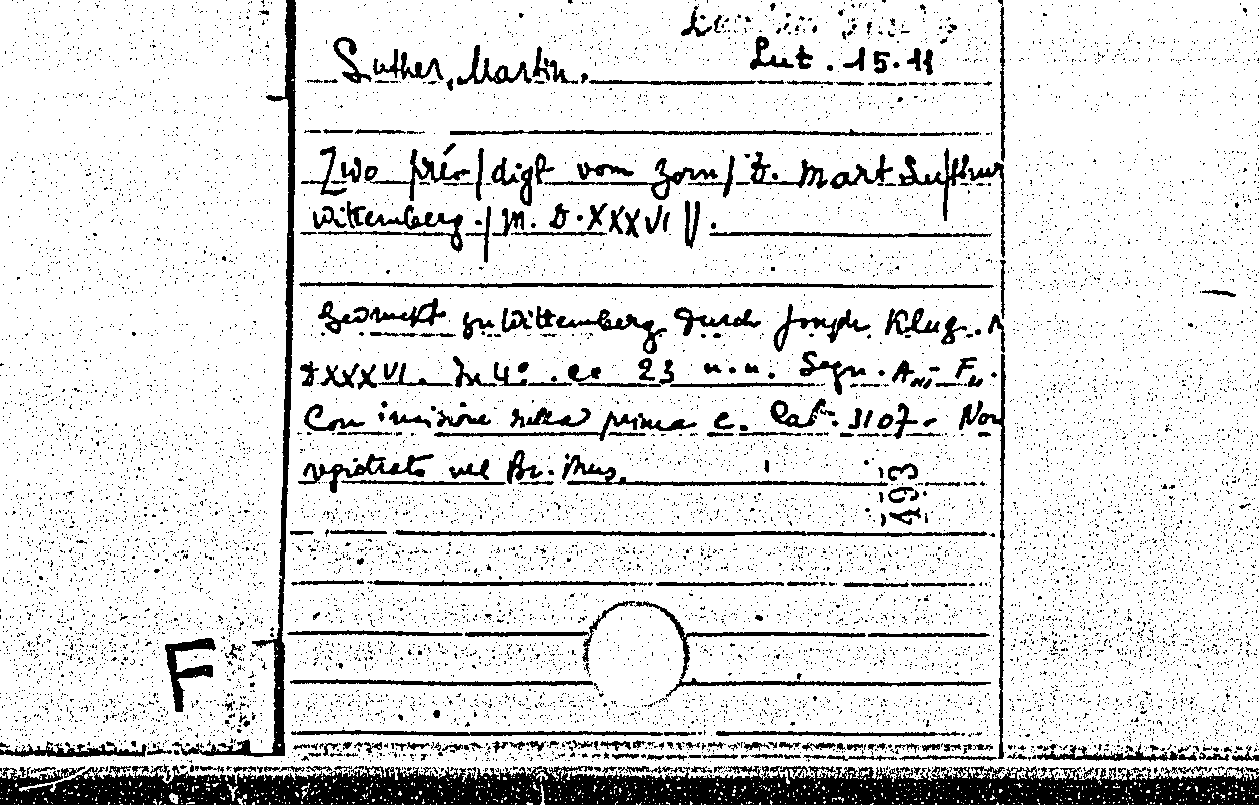 Luther, Martin.
Lut. 15.11
Zwo pré-/digt vom Zorn/ D. Mart Luther
Wittemberg./ M. D. XXXVI ||.
Gedruckt zu Wittemberg durch Joseph Klug. M
DXXXVI. In 4°. cc 23 n.n. Segn. A - F
Con incisione nella prima c. Cat. 3107 - Non
registrato nel Br. Mus.
493
F